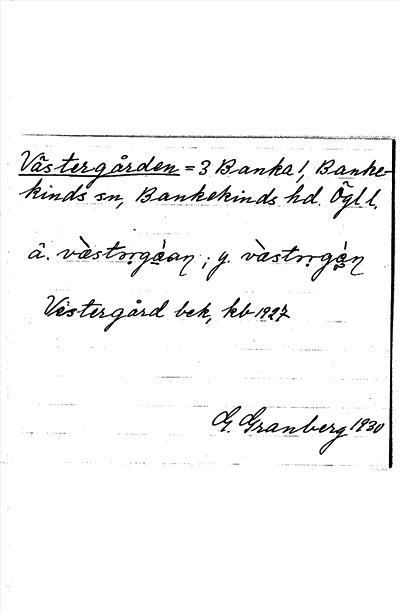 Västergården = 3 Banka!, Banke-
kinds sn, Bankekinds hd. Ögl l.
ä. vàstərgàan ; y. vàstərgàn
Västergård bek, kb 1927
G. Granberg 1930